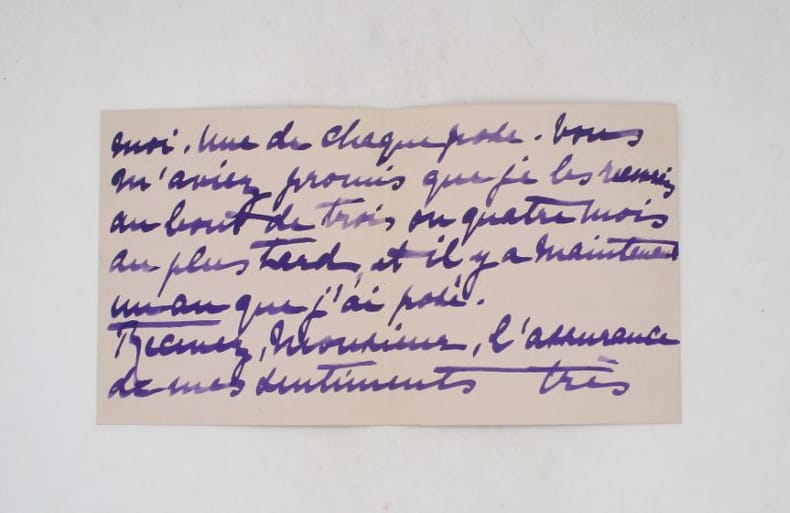 moi. Une de chaque pose. Vous
m'aviez promis que je les
au bout de trois ou quatre mois
au plus tard, et il y a maintenant
un an que j'ai posé.
Recevez, Monsieur, l'assurance
de mes sentiments très